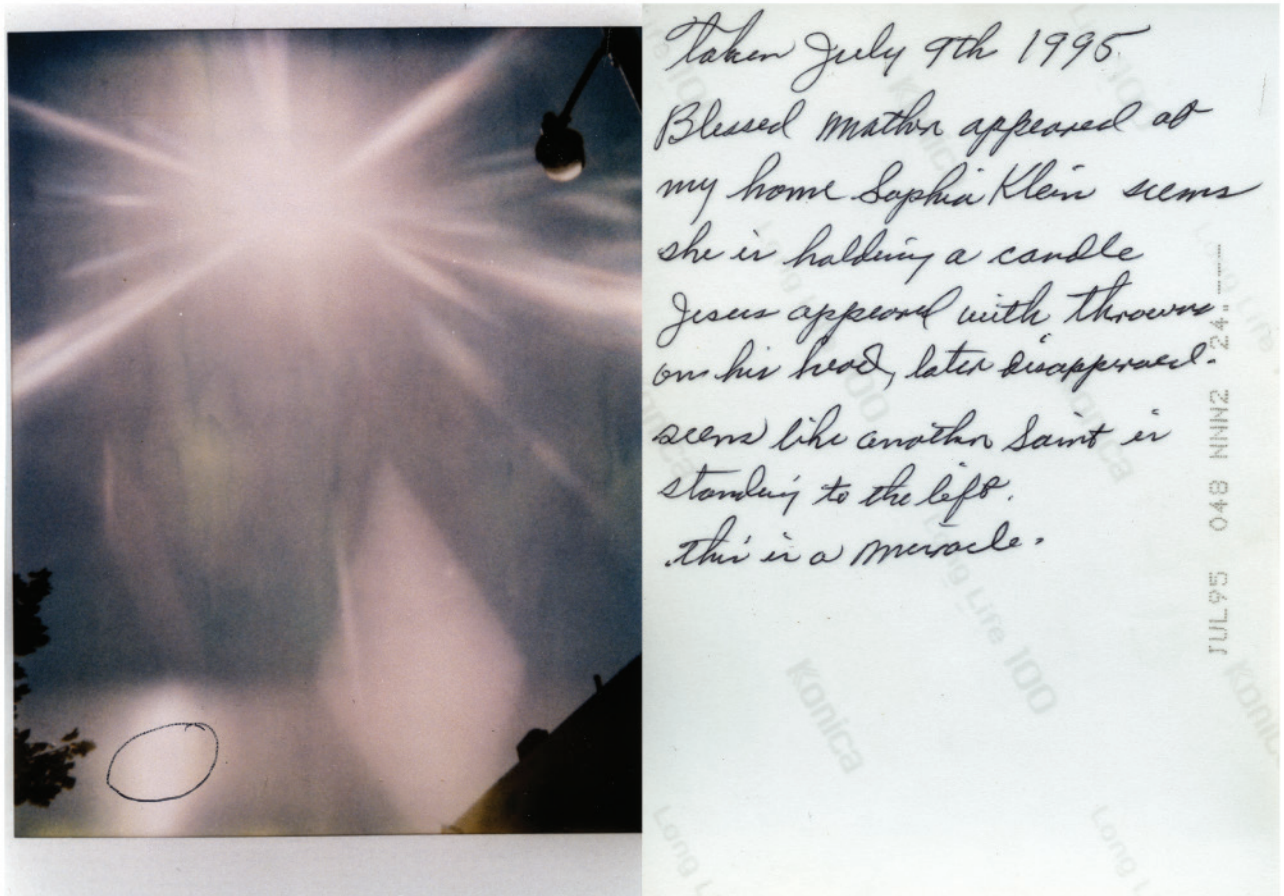 taken July 9th 1995
Blessed Mother appeared at
my home Sophia Klein seems
she is holding a candle
Jesus appeared with throwns
on his head, later disappeared.
seems like another Saint is
standing to the left.
this is a miracle.
JUL95 048 NNN2 24.---
Konica
Long Life 100